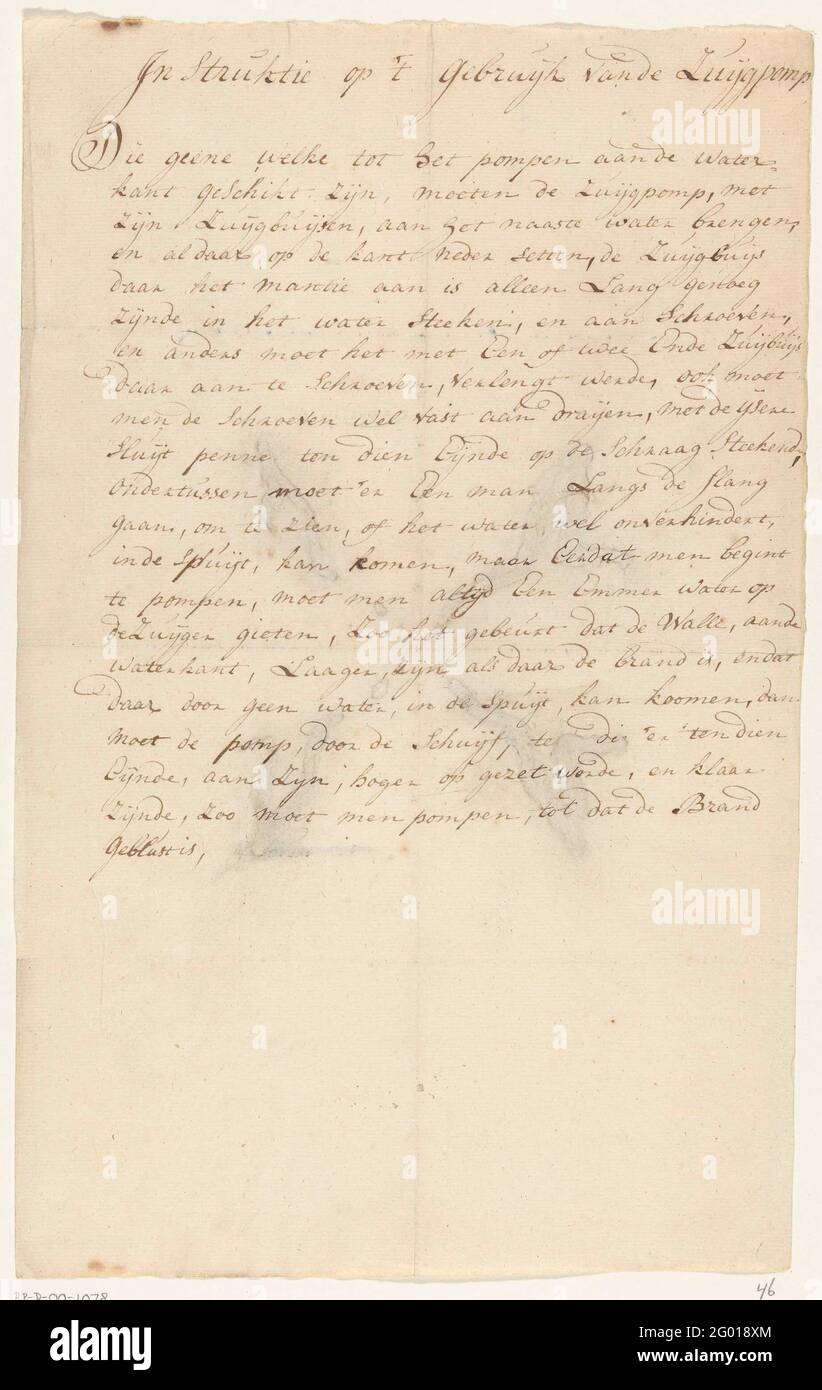 In Struktie op 't Gebruyk vande Zuijgpomp
Die geene welke tot het pompen aande water-
kant geschikt zijn, moeten de Zuijgpomp, met
zijn Zuijgbuijsen, aan het naaste water brengen,
en aldaar op de kant neder setten, de Zuijgbuijs
daar het mantie aan is alleen Lang genoeg
zijnde in het water Steeken, en aan Schroeven,
en anders moet het met Een of twee Ende Zuijbuijs
daar aan te Schroeven, verlengt werde, ook moet
men de Schroeven wel vast aan draijen, met de ijsere
Sluijt penne ten dien Eijnde op de Schraag Steekend,
ondertussen moet 'er Een man Langs de Slang
gaan, om te zien, of het water wel onverhindert,
inde Spuijt, kan komen, maar Eerdat men begint
te pompen, moet men altijd Een Emmer water op
de Zuijger gieten, Zoo het gebeurt dat de Walle, aande
waterkant, Laager, zijn als daar de brand is, en dat
daar door geen water, in de Spuijt, kan koomen, dan
moet de pomp, door de Schuijf, te die 'er ten dien
Eijnde, aan Zijn, hoger op gezet worde, en klaar
zijnde, Zoo moet men pompen, tot dat de Brand
geblust is,
alamy
alamy
alamy
alamy
RP-P-OO-1078
46
alamy
Image ID: 2G018XM
www.alamy.com